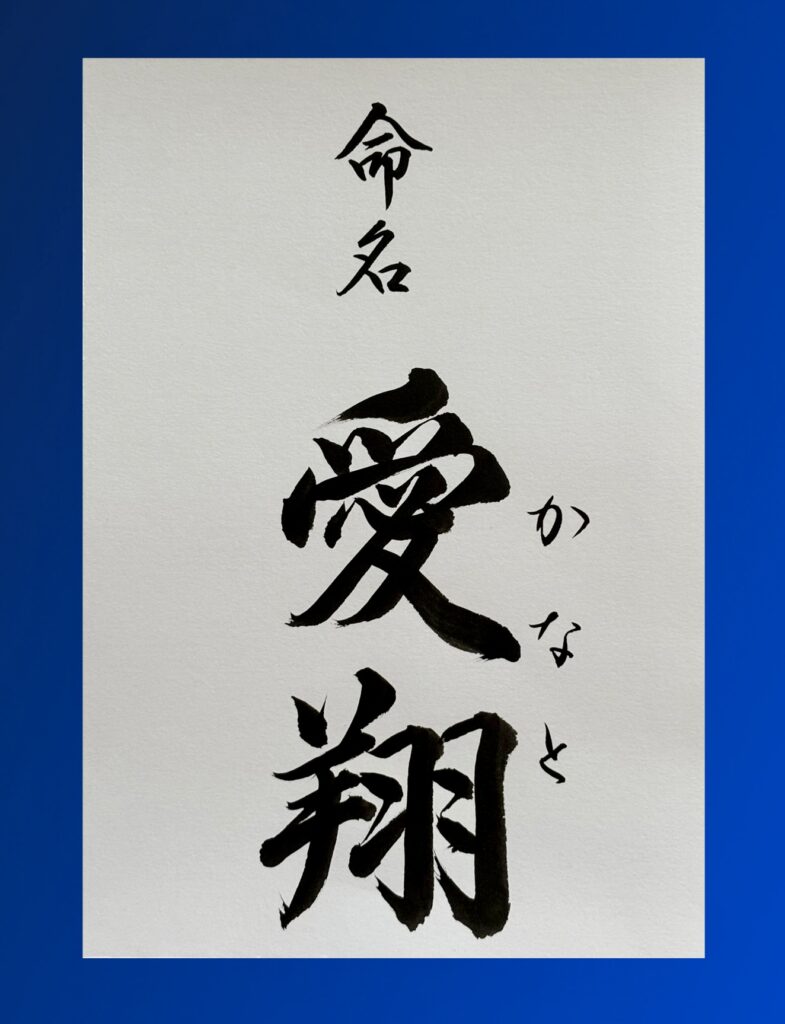 命名
愛翔
かなと